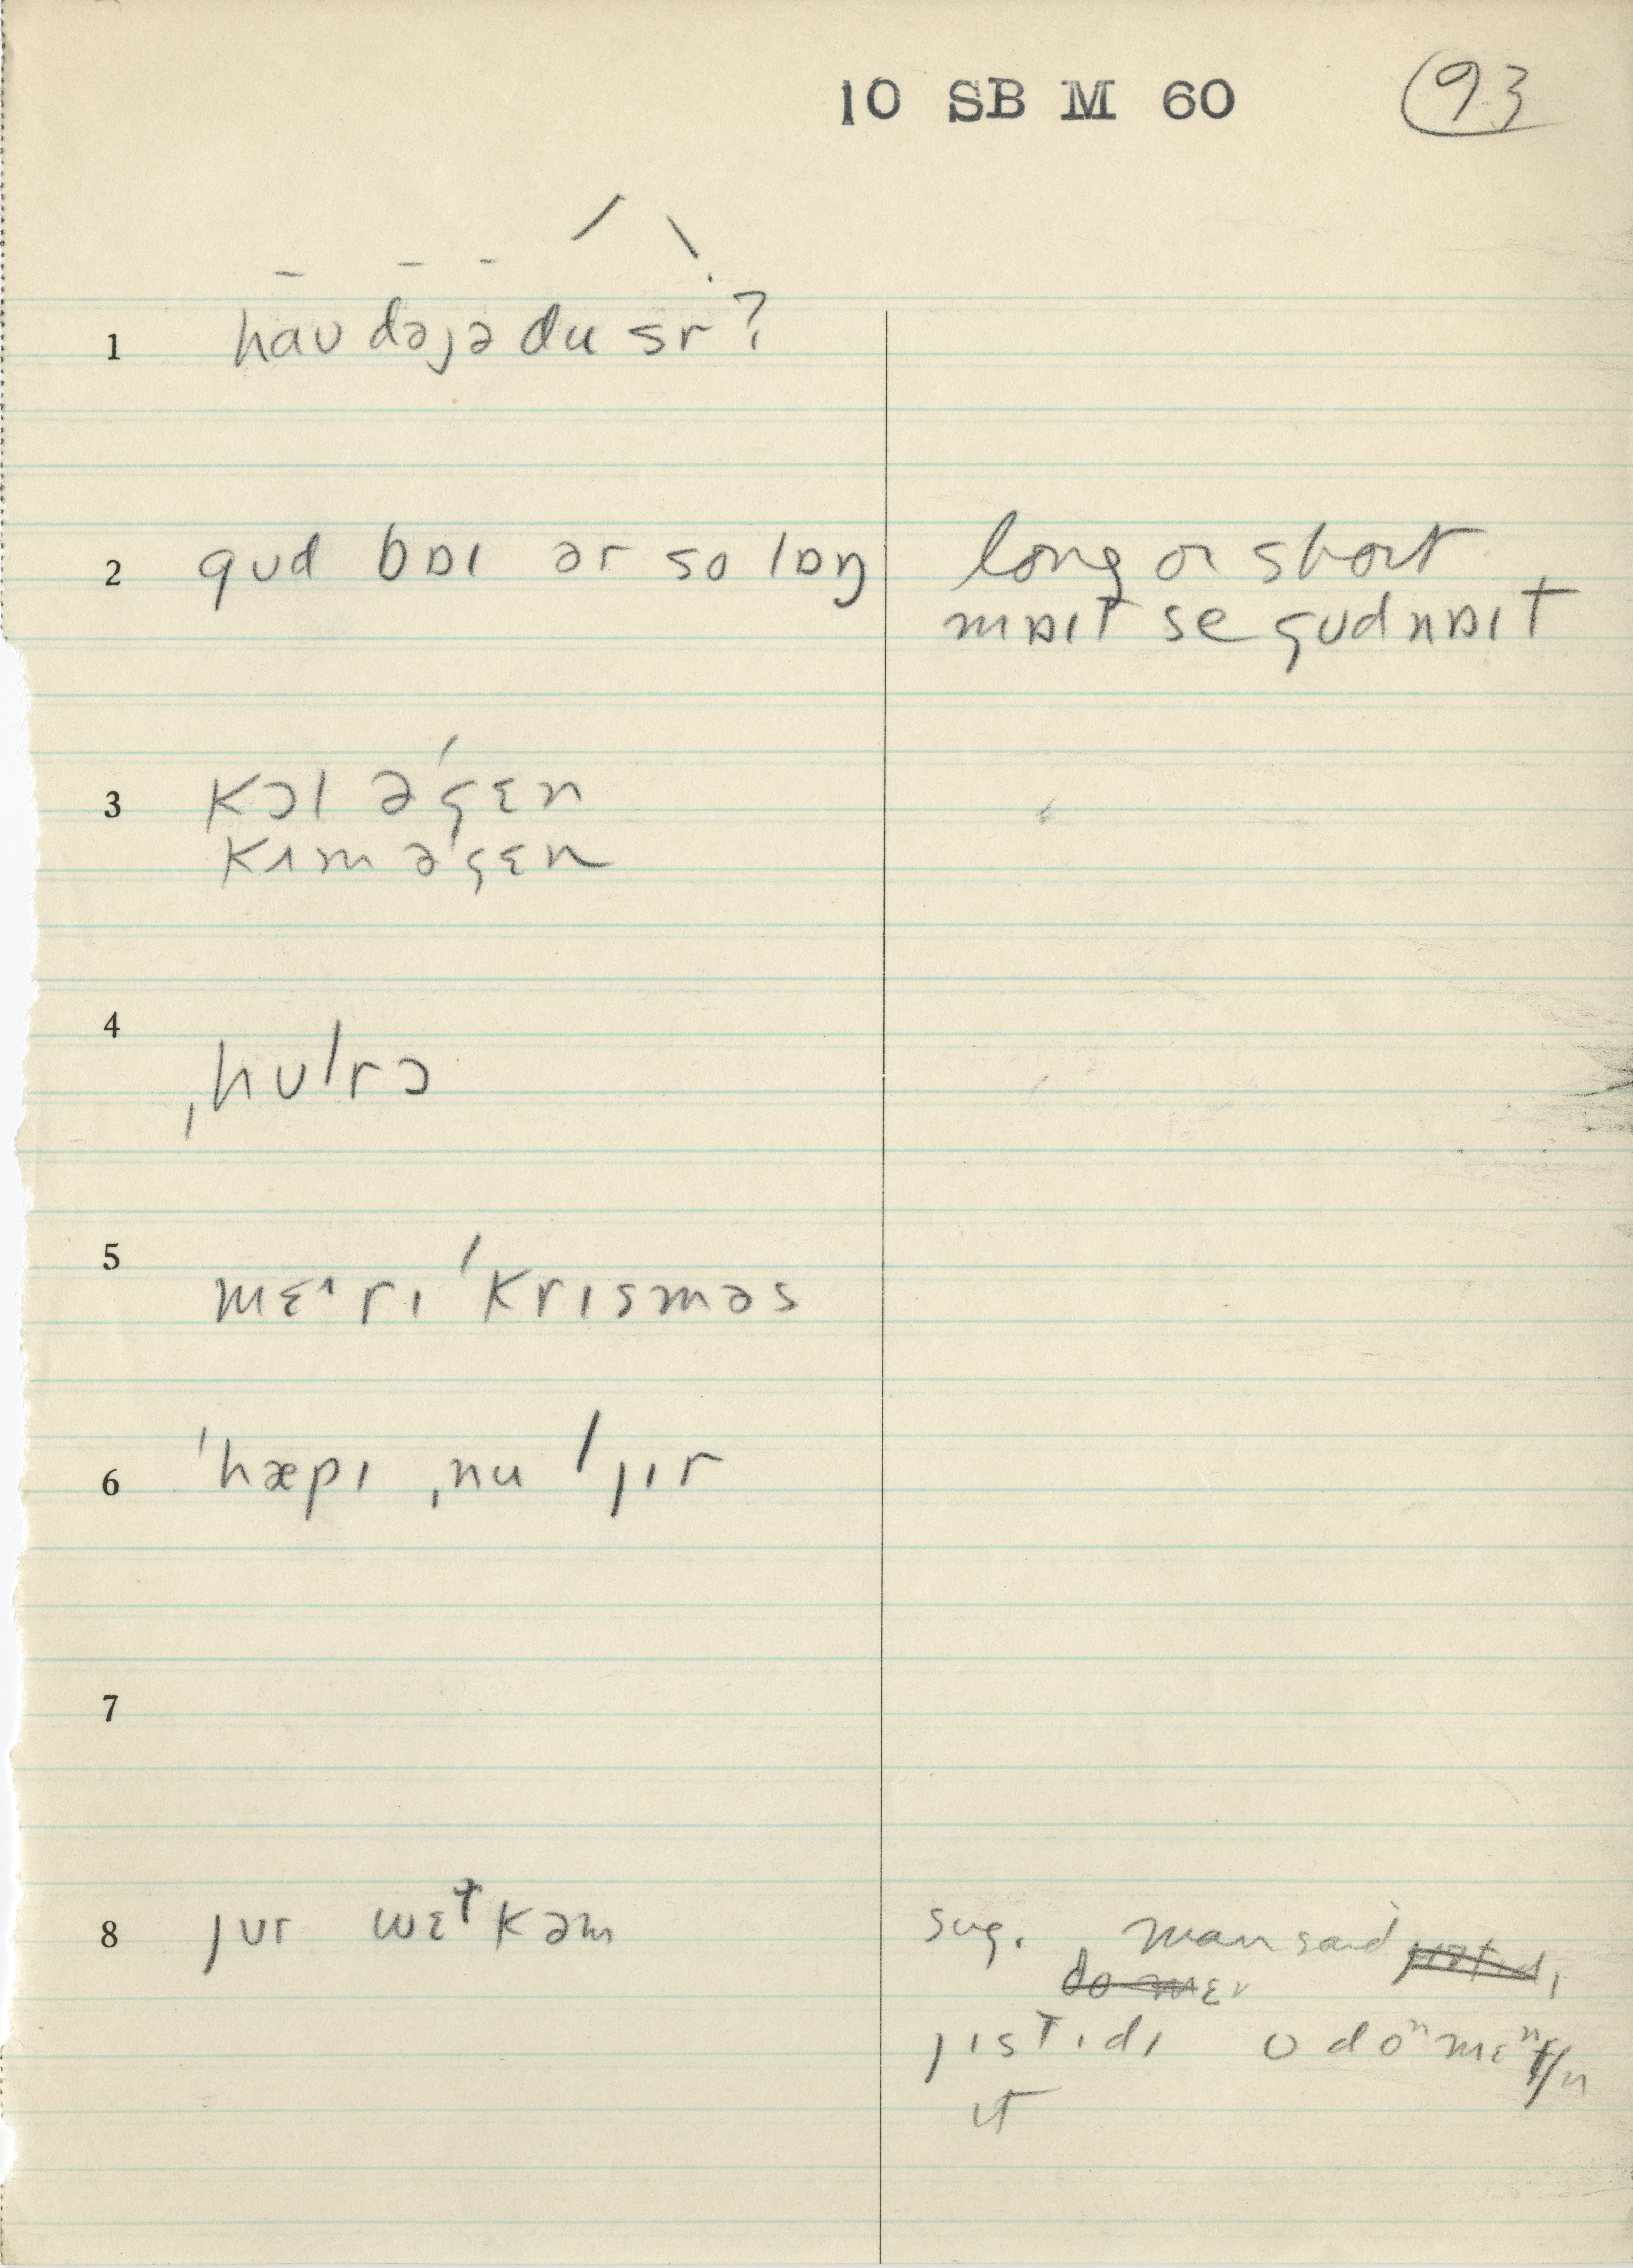 10 SB M 60 93
1 haʊ dəjə du sr?
2 gʊd bɒɪ ər so lɒŋ long or short
mɒɪt se gʊd nɒɪt
3 kɔl əˈgɛn
kʌm əˈgɛn
4 ˌhʊˈrɔ
5 mɛ˄rɪ ˈkrɪsməs
6 ˈhæpɪ ˌnu ˈjɪr
7
8 jʊr wɛɫkəm sug. man said
jɪstɪdɪ
ɪt